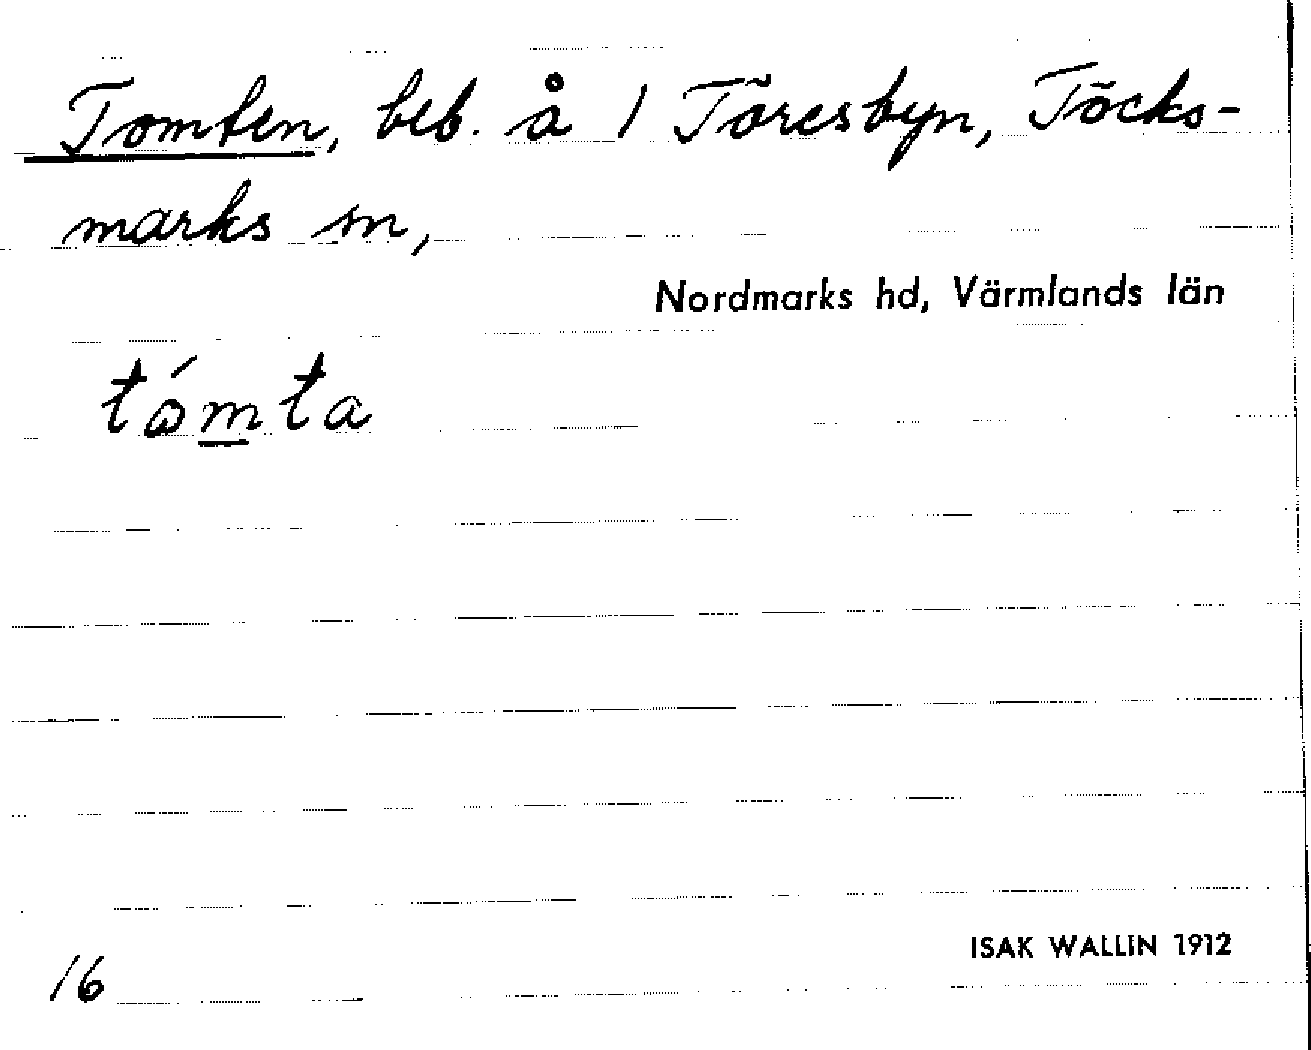 Tomten, beb. å 1 Töresbyn, Töcks-
marks sn,
Nordmarks hd, Värmlands län
tómta
ISAK WALLIN 1912
16